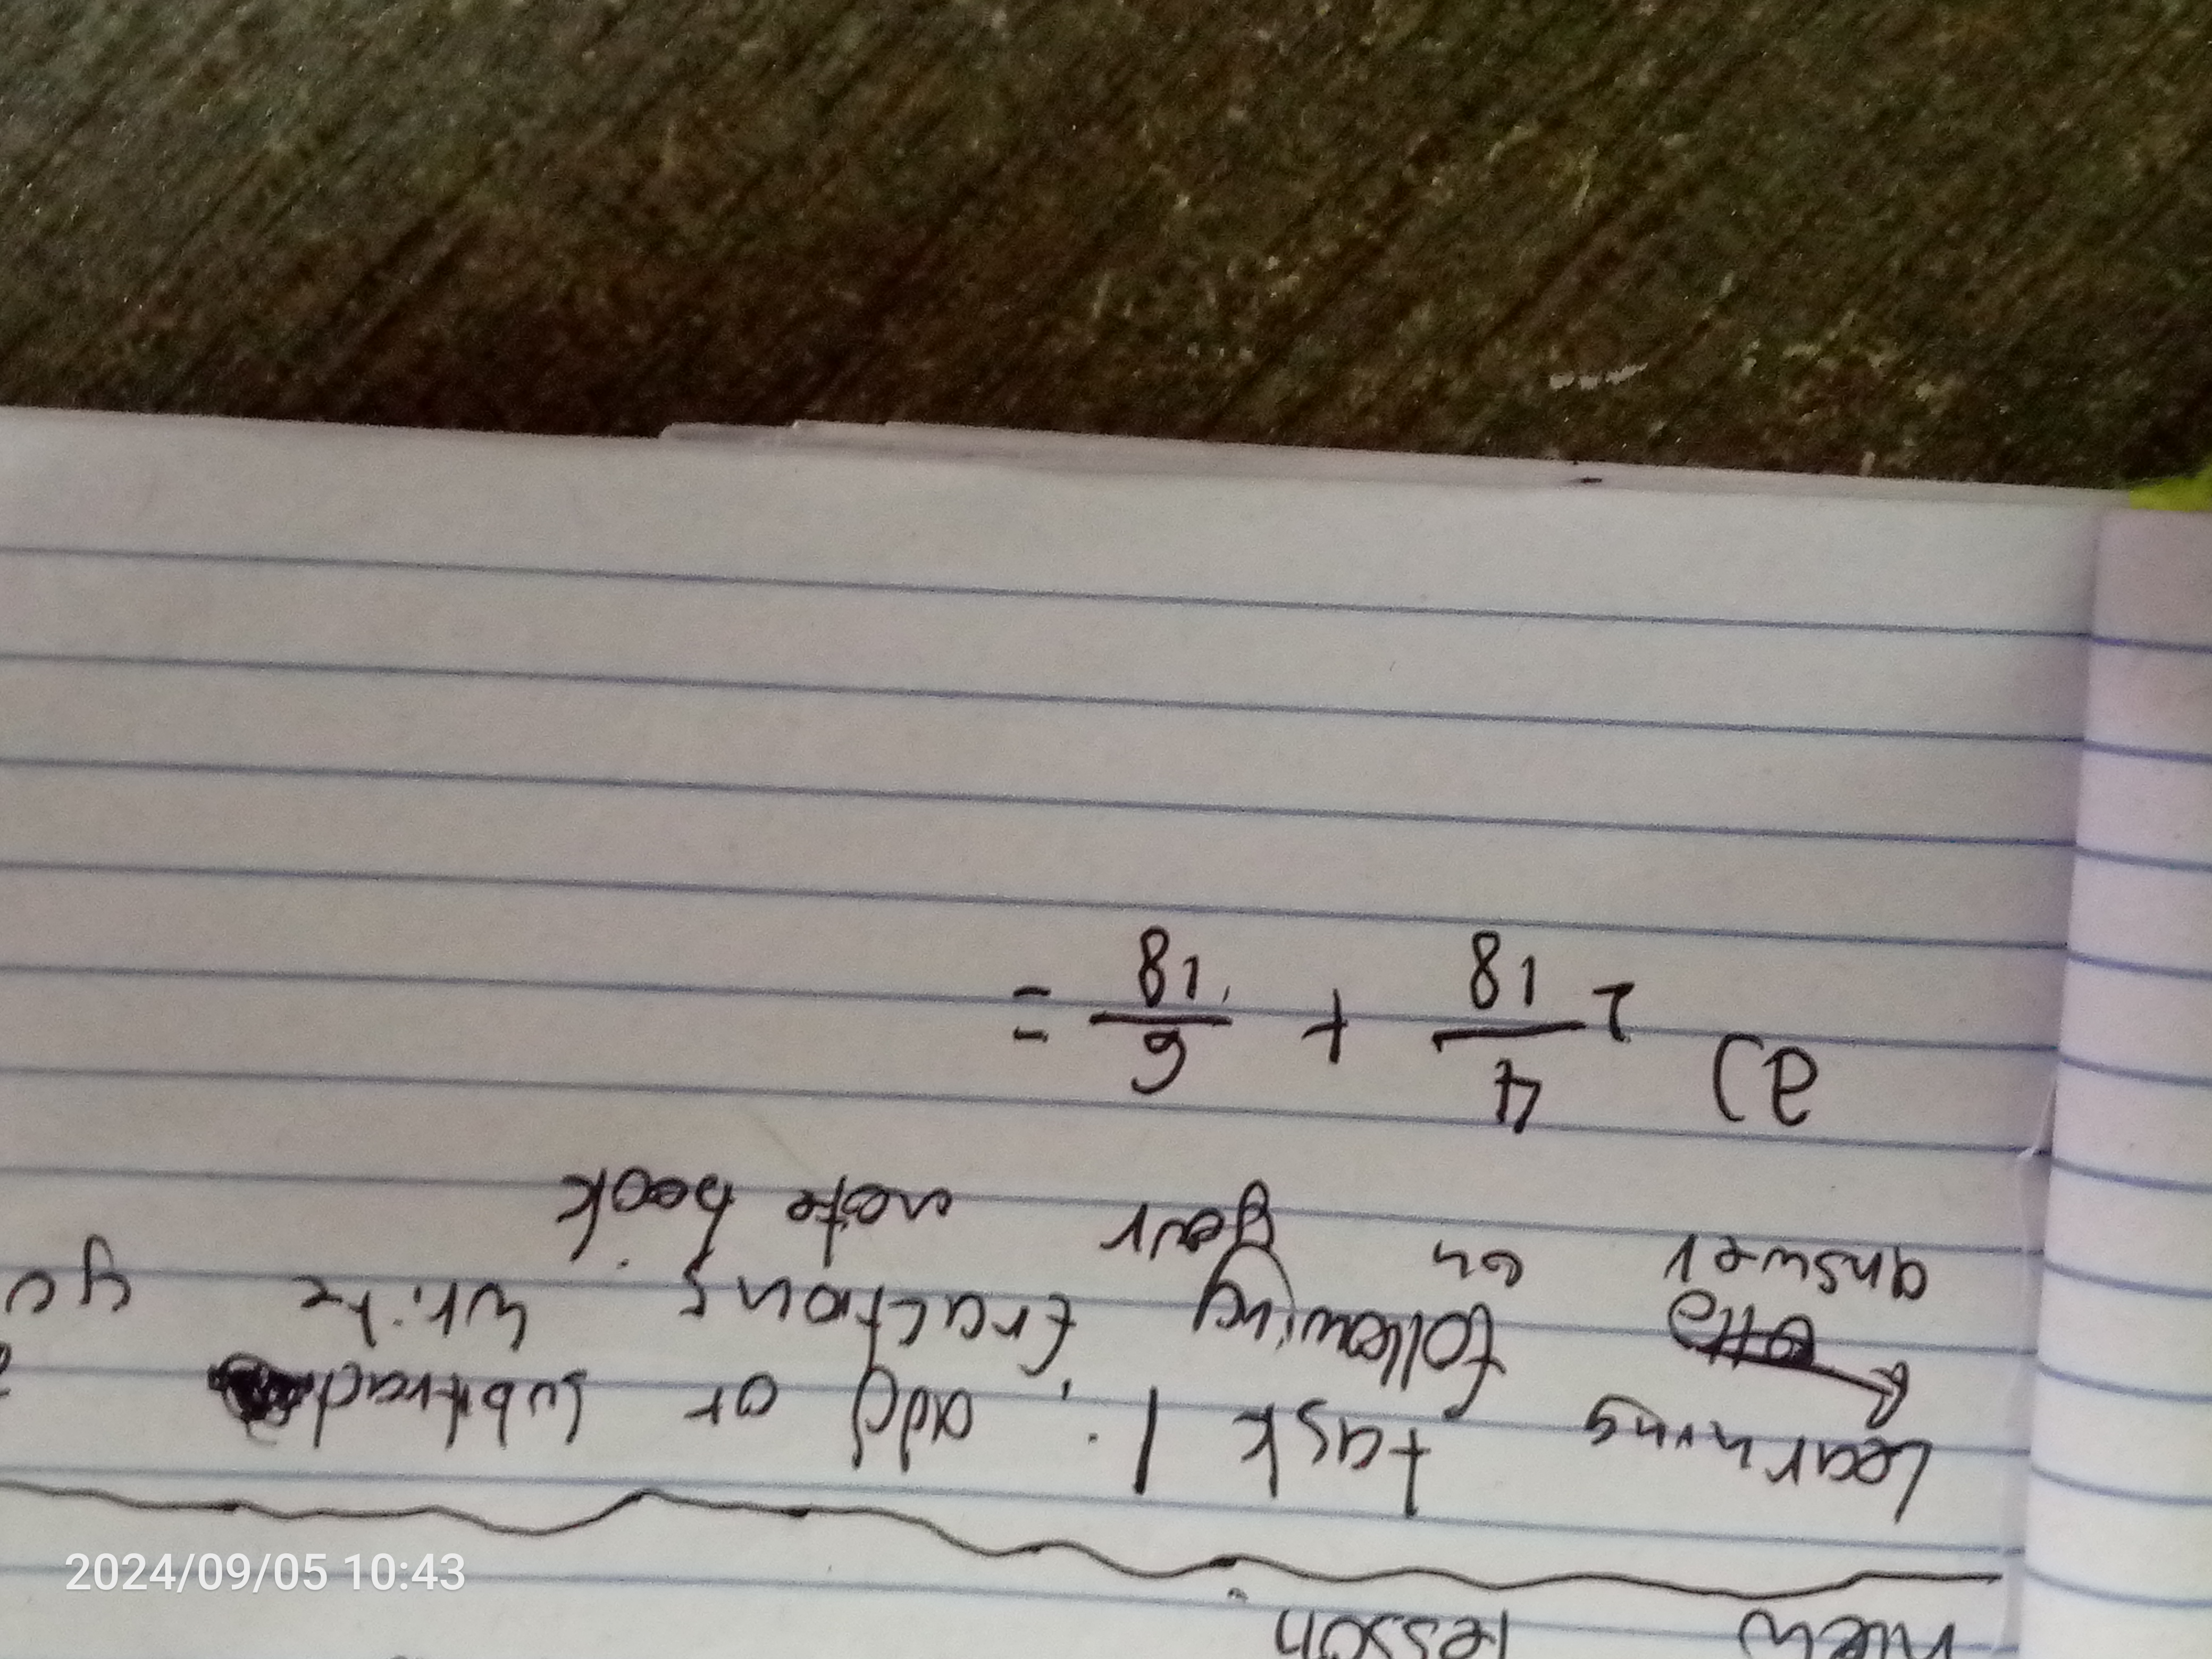 new lesson
Learning task 1: add or subtract
following fractions write yo
answer on your note book
a) 2 4/18 + 6/18 =
2024/09/05 10:43